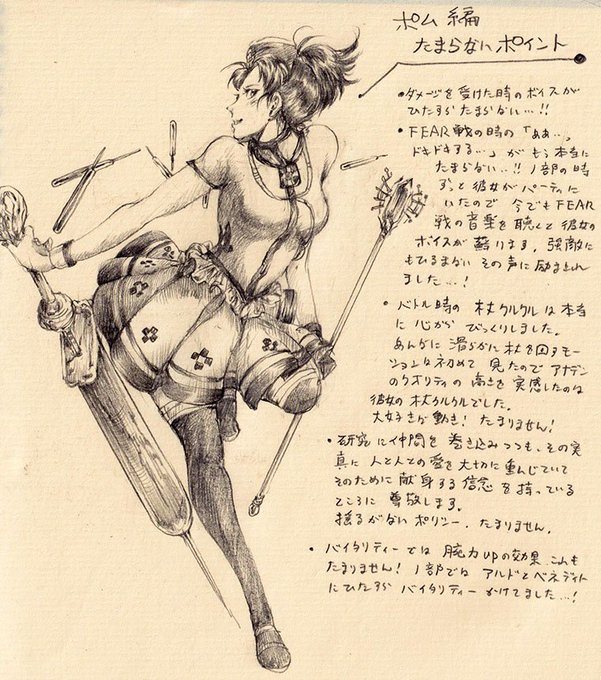 ポム編
たまらないポイント
・ダメージを受けた時のボイスが
ひたすらたまらない…!!
・FEAR戦の時の「ああ…、
ドキドキする…」がもう本当に
たまらない…!! 1部の時
ずっと彼女がパーティに
いたので今でもFEAR
戦の音楽を聴くと彼女の
ボイスが蘇ります。強敵に
もひるまないその声に励まされ
ました…!
・バトル時の杖クルクルは本当
に心からびっくりしました。
あんなに滑らかに杖を回すモー
ションは初めて見たのでアナデン
のクオリティの高さを実感したのは
彼女の杖クルクルでした。
大好きな動き! たまりません!
・研究に仲間を巻き込みつつも、その実
真に人と人との愛を大切に重んじていて
そのために献身する信念を持っている
ところに尊敬します。
揺るがないポリシー、たまりません。
・バイタリティーでは腕力upの効果、これも
たまりません! 1部ではアルドとベネディト
にひたすらバイタリティーかけてました…!